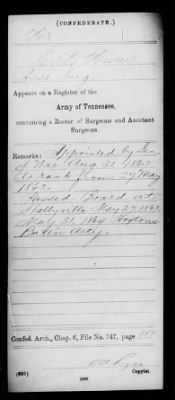 (CONFEDERATE.)
Asst Surg.
Appears on a Register of the
Army of Tennessee,
containing a Roster of Surgeons and Assistant
Surgeons
Remarks: Appointed by Sec
of War Aug 21, 1862
to rank from 29 May
1862.
Passed Board at
Shelbyville May 29 1862
May 31, 1864
Batln Arty.
Confed. Arch., Chap. 6, File No. 747, page
Copyist.